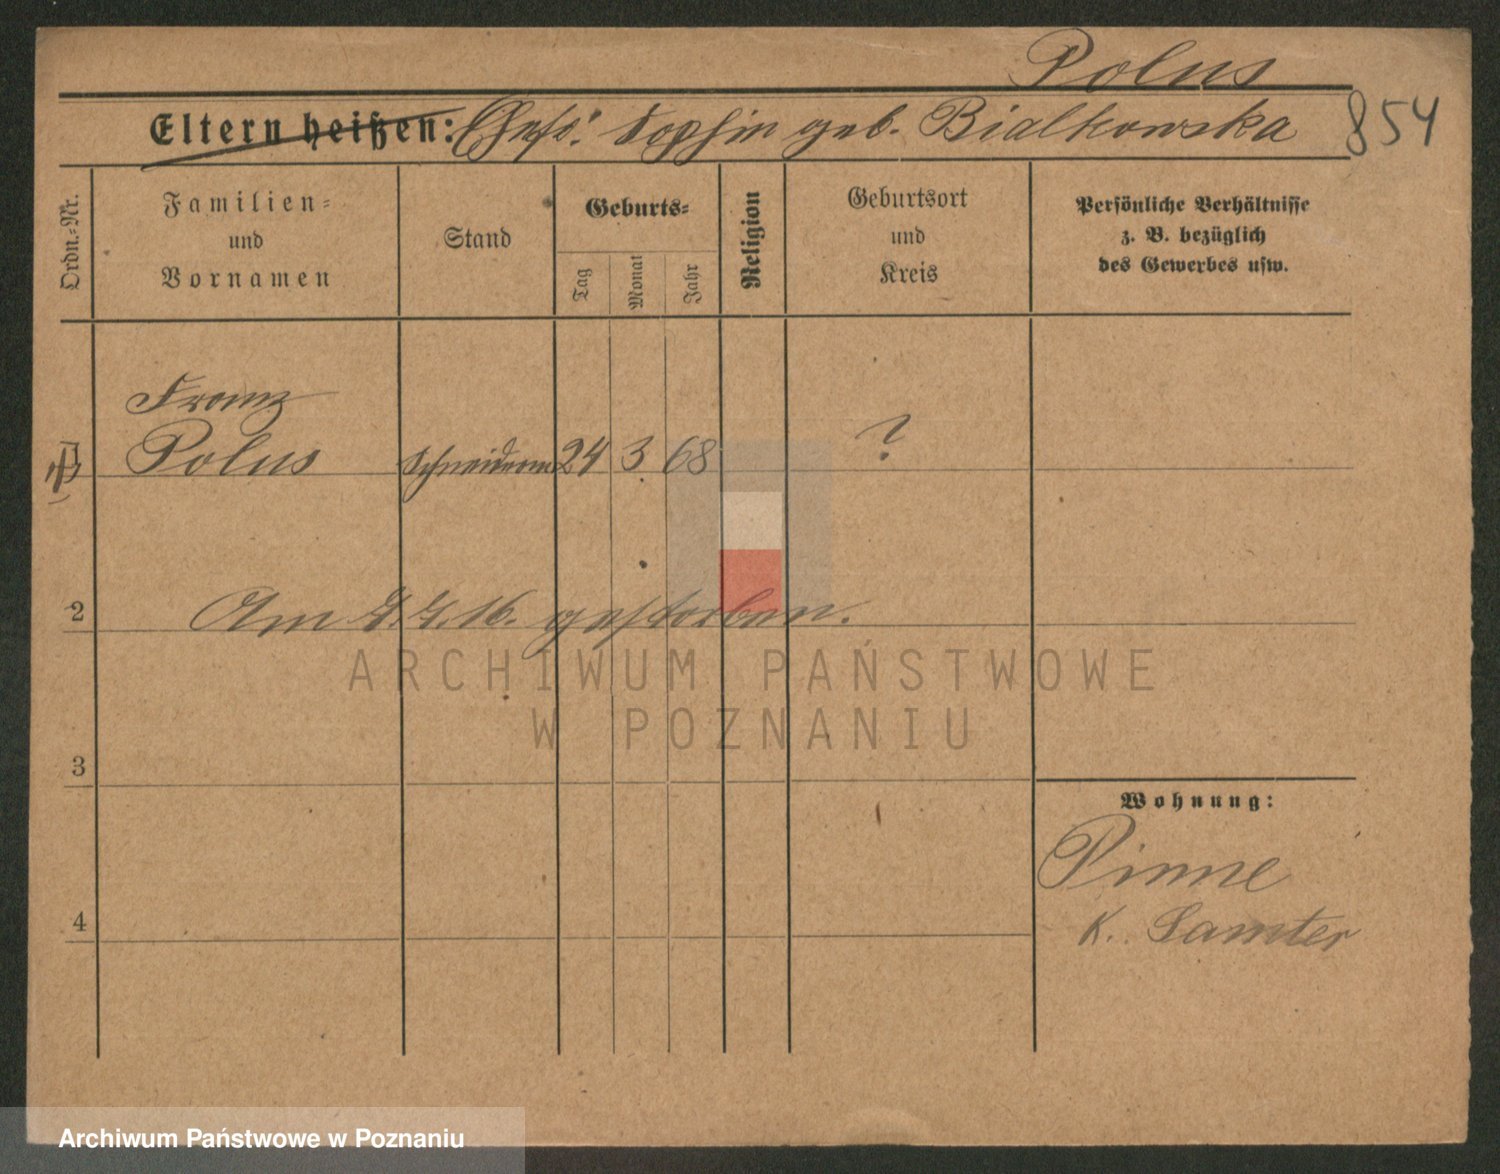 Polus
Eltern heißen: Ehefr: Sophie geb. Bialkowska 854
Ordn.-Nr.
Familien-
und
Vornamen
Stand
Geburts-
Tag
Monat
Jahr
Religion
Geburtsort
und
Kreis
Persönliche Verhältnisse
z. B. bezüglich
des Gewerbes usw.
Franz
Polus 24 3 68 ?
2 Am 4.4.16. gestorben.
3
4
Wohnung:
Pinne
K. Samter
ARCHIWUM PAŃSTWOWE
W POZNANIU
Archiwum Państwowe w Poznaniu